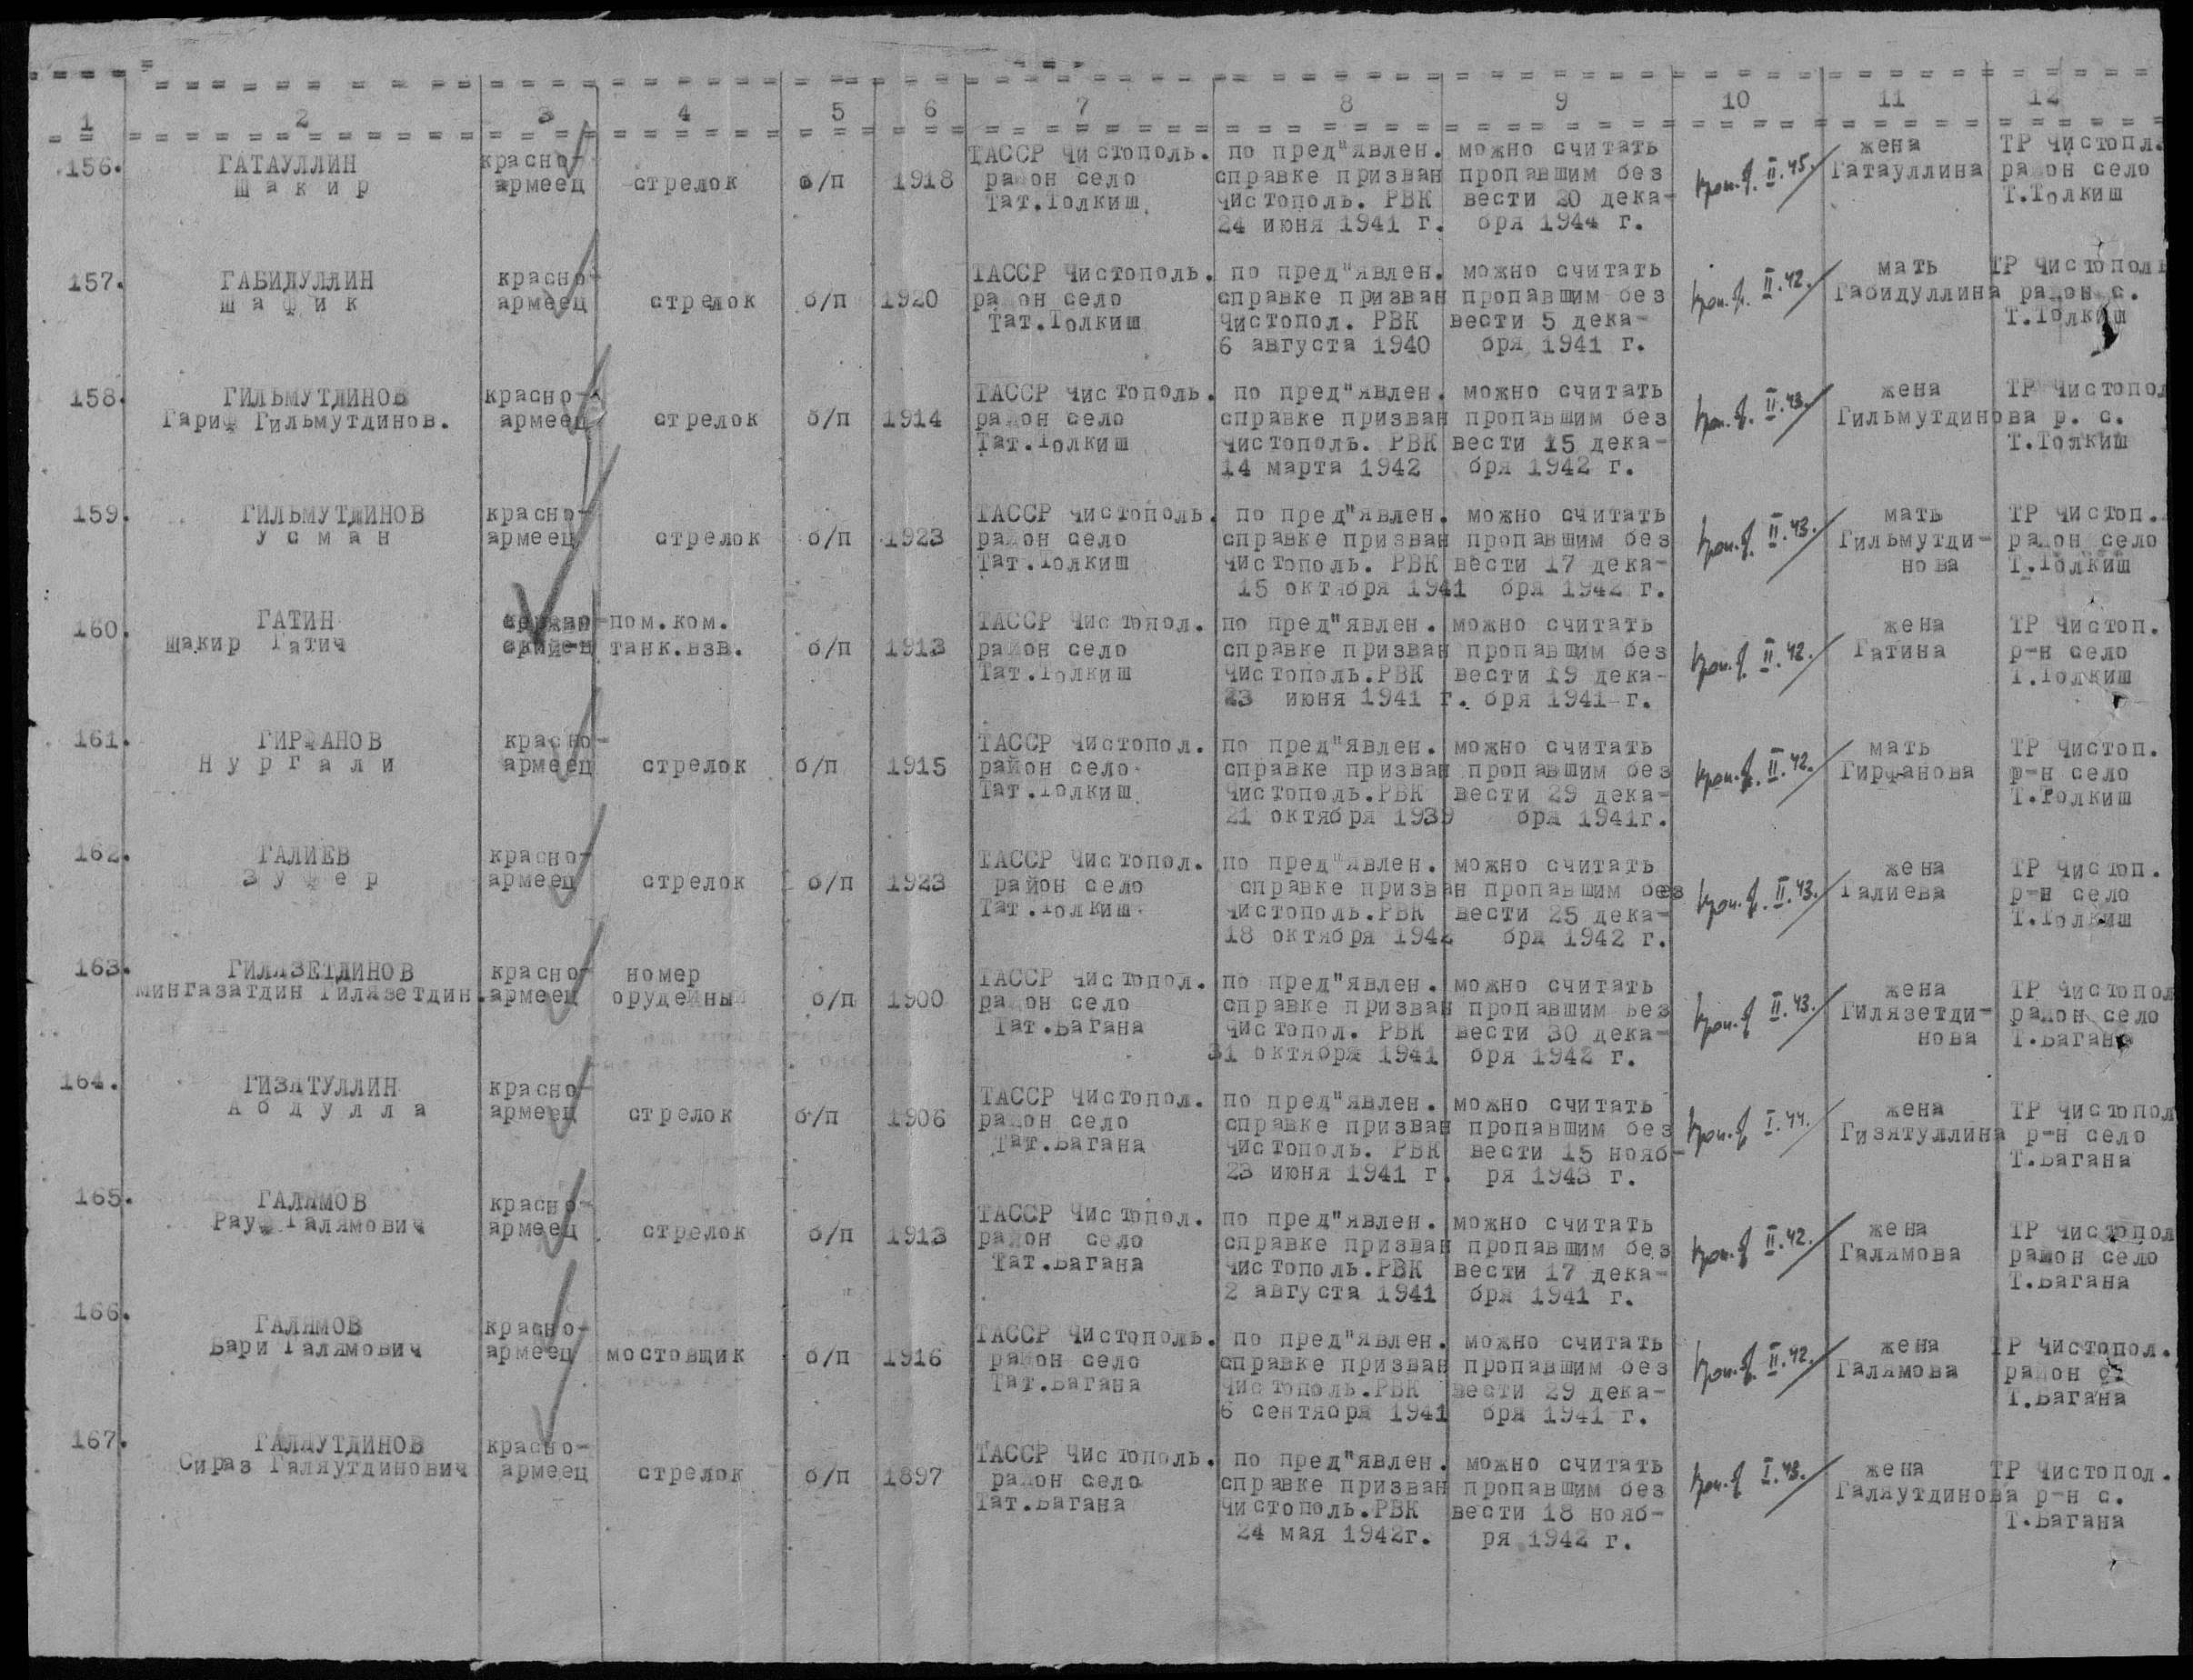 1 2 3 4 5 6 7 8 9 10 11 12
156. ГАТАУЛЛИН красно- ТАССР Чистополь. по пред"явлен. можно считать жена ТР Чистопл.
Шакир армеец стрелок б/п 1918 район село справке призван пропавшим без проп. II.45. Гатауллина район село
Тат.Толкиш Чистополь. РВК вести 20 дека- Т.Толкиш
24 июня 1941 г. бря 1944 г.
157. ГАБИДУЛЛИН красно- ТАССР Чистополь. по пред"явлен. можно считать мать ТР Чистополь
Шафик армеец стрелок б/п 1920 район село справке призван пропавшим без проп. II.42. Габидуллина район с.
Тат.Толкиш Чистопол. РВК вести 5 дека- Т.Толкиш
6 августа 1940 бря 1941 г.
158. ГИЛЬМУТДИНОВ красно- ТАССР Чистополь. по пред"явлен. можно считать жена ТР Чистопол
Гариф Гильмутдинов. армеец стрелок б/п 1914 район село справке призван пропавшим без проп. II.43. Гильмутдинова р. с.
Тат.Толкиш Чистополь. РВК вести 15 дека- Т.Толкиш
14 марта 1942 бря 1942 г.
159. ГИЛЬМУТДИНОВ красно- ТАССР Чистополь. по пред"явлен. можно считать мать ТР Чистоп.
Усман армеец стрелок б/п 1923 район село справке призван пропавшим без проп. II.43. Гильмутди- район село
Тат.Толкиш Чистополь. РВК вести 17 дека- нова Т.Толкиш
15 октября 1941 бря 1942 г.
160. ГАТИН пом.ком. ТАССР Чистопол. по пред"явлен. можно считать жена ТР Чистоп.
Шакир Гатич танк.взв. б/п 1913 район село справке призван пропавшим без проп. II.42. Гатина р-н село
Тат.Толкиш Чистополь.РВК вести 19 дека- Т.Толкиш
23 июня 1941 г. бря 1941 г.
161. ГИРФАНОВ красно- ТАССР Чистопол. по пред"явлен. можно считать мать ТР Чистоп.
Нургали армеец стрелок б/п 1915 район село справке призван пропавшим без проп. II.42. Гирфанова р-н село
Тат.Толкиш Чистополь.РВК вести 29 дека- Т.Толкиш
21 октября 1939 бря 1941г.
162. ГАЛИЕВ красно- ТАССР Чистопол. по пред"явлен. можно считать жена ТР Чистоп.
Зуфер армеец стрелок б/п 1923 район село справке призван пропавшим без проп. II.43. Галиева р-н село
Тат.Толкиш Чистополь.РВК вести 25 дека- Т.Толкиш
18 октября 1942 бря 1942 г.
163. ГИЛЯЗЕТДИНОВ красно- номер ТАССР Чистопол. по пред"явлен. можно считать жена ТР Чистопол
Мингазатдин Гилязетдин. армеец орудейный б/п 1900 район село справке призван пропавшим без проп. II.43. Гилязетди- район село
Тат.Багана Чистопол. РВК вести 30 дека- нова Т.Багана
31 октября 1941 бря 1942 г.
164. ГИЗЯТУЛЛИН красно- ТАССР Чистопол. по пред"явлен. можно считать жена ТР Чистопол
Абдулла армеец стрелок б/п 1906 район село справке призван пропавшим без проп. I.44. Гизятуллина р-н село
Тат.Багана Чистополь. РВК вести 15 нояб- Т.Багана
23 июня 1941 г. ря 1943 г.
165. ГАЛЯМОВ красно- ТАССР Чистопол. по пред"явлен. можно считать жена ТР Чистопол
Рауф Галямович армеец стрелок б/п 1913 район село справке призван пропавшим без проп. II.42. Галямова район село
Тат.Багана Чистополь.РВК вести 17 дека- Т.Багана
2 августа 1941 бря 1941 г.
166. ГАЛЯМОВ красно- ТАССР Чистополь. по пред"явлен. можно считать жена ТР Чистопол.
Бари Галямович армеец мостовщик б/п 1916 район село справке призван пропавшим без проп. II.42. Галямова район с.
Тат.Багана Чистополь.РВК вести 29 дека- Т.Багана
6 сентября 1941 бря 1941 г.
167. ГАЛЯУТДИНОВ красно- ТАССР Чистополь. по пред"явлен. можно считать жена ТР Чистопол.
Сираз Галяутдинович армеец стрелок б/п 1897 район село справке призван пропавшим без проп. I.43. Галяутдинова р-н с.
Тат.Багана Чистополь.РВК вести 18 нояб- Т.Багана
24 мая 1942г. ря 1942 г.